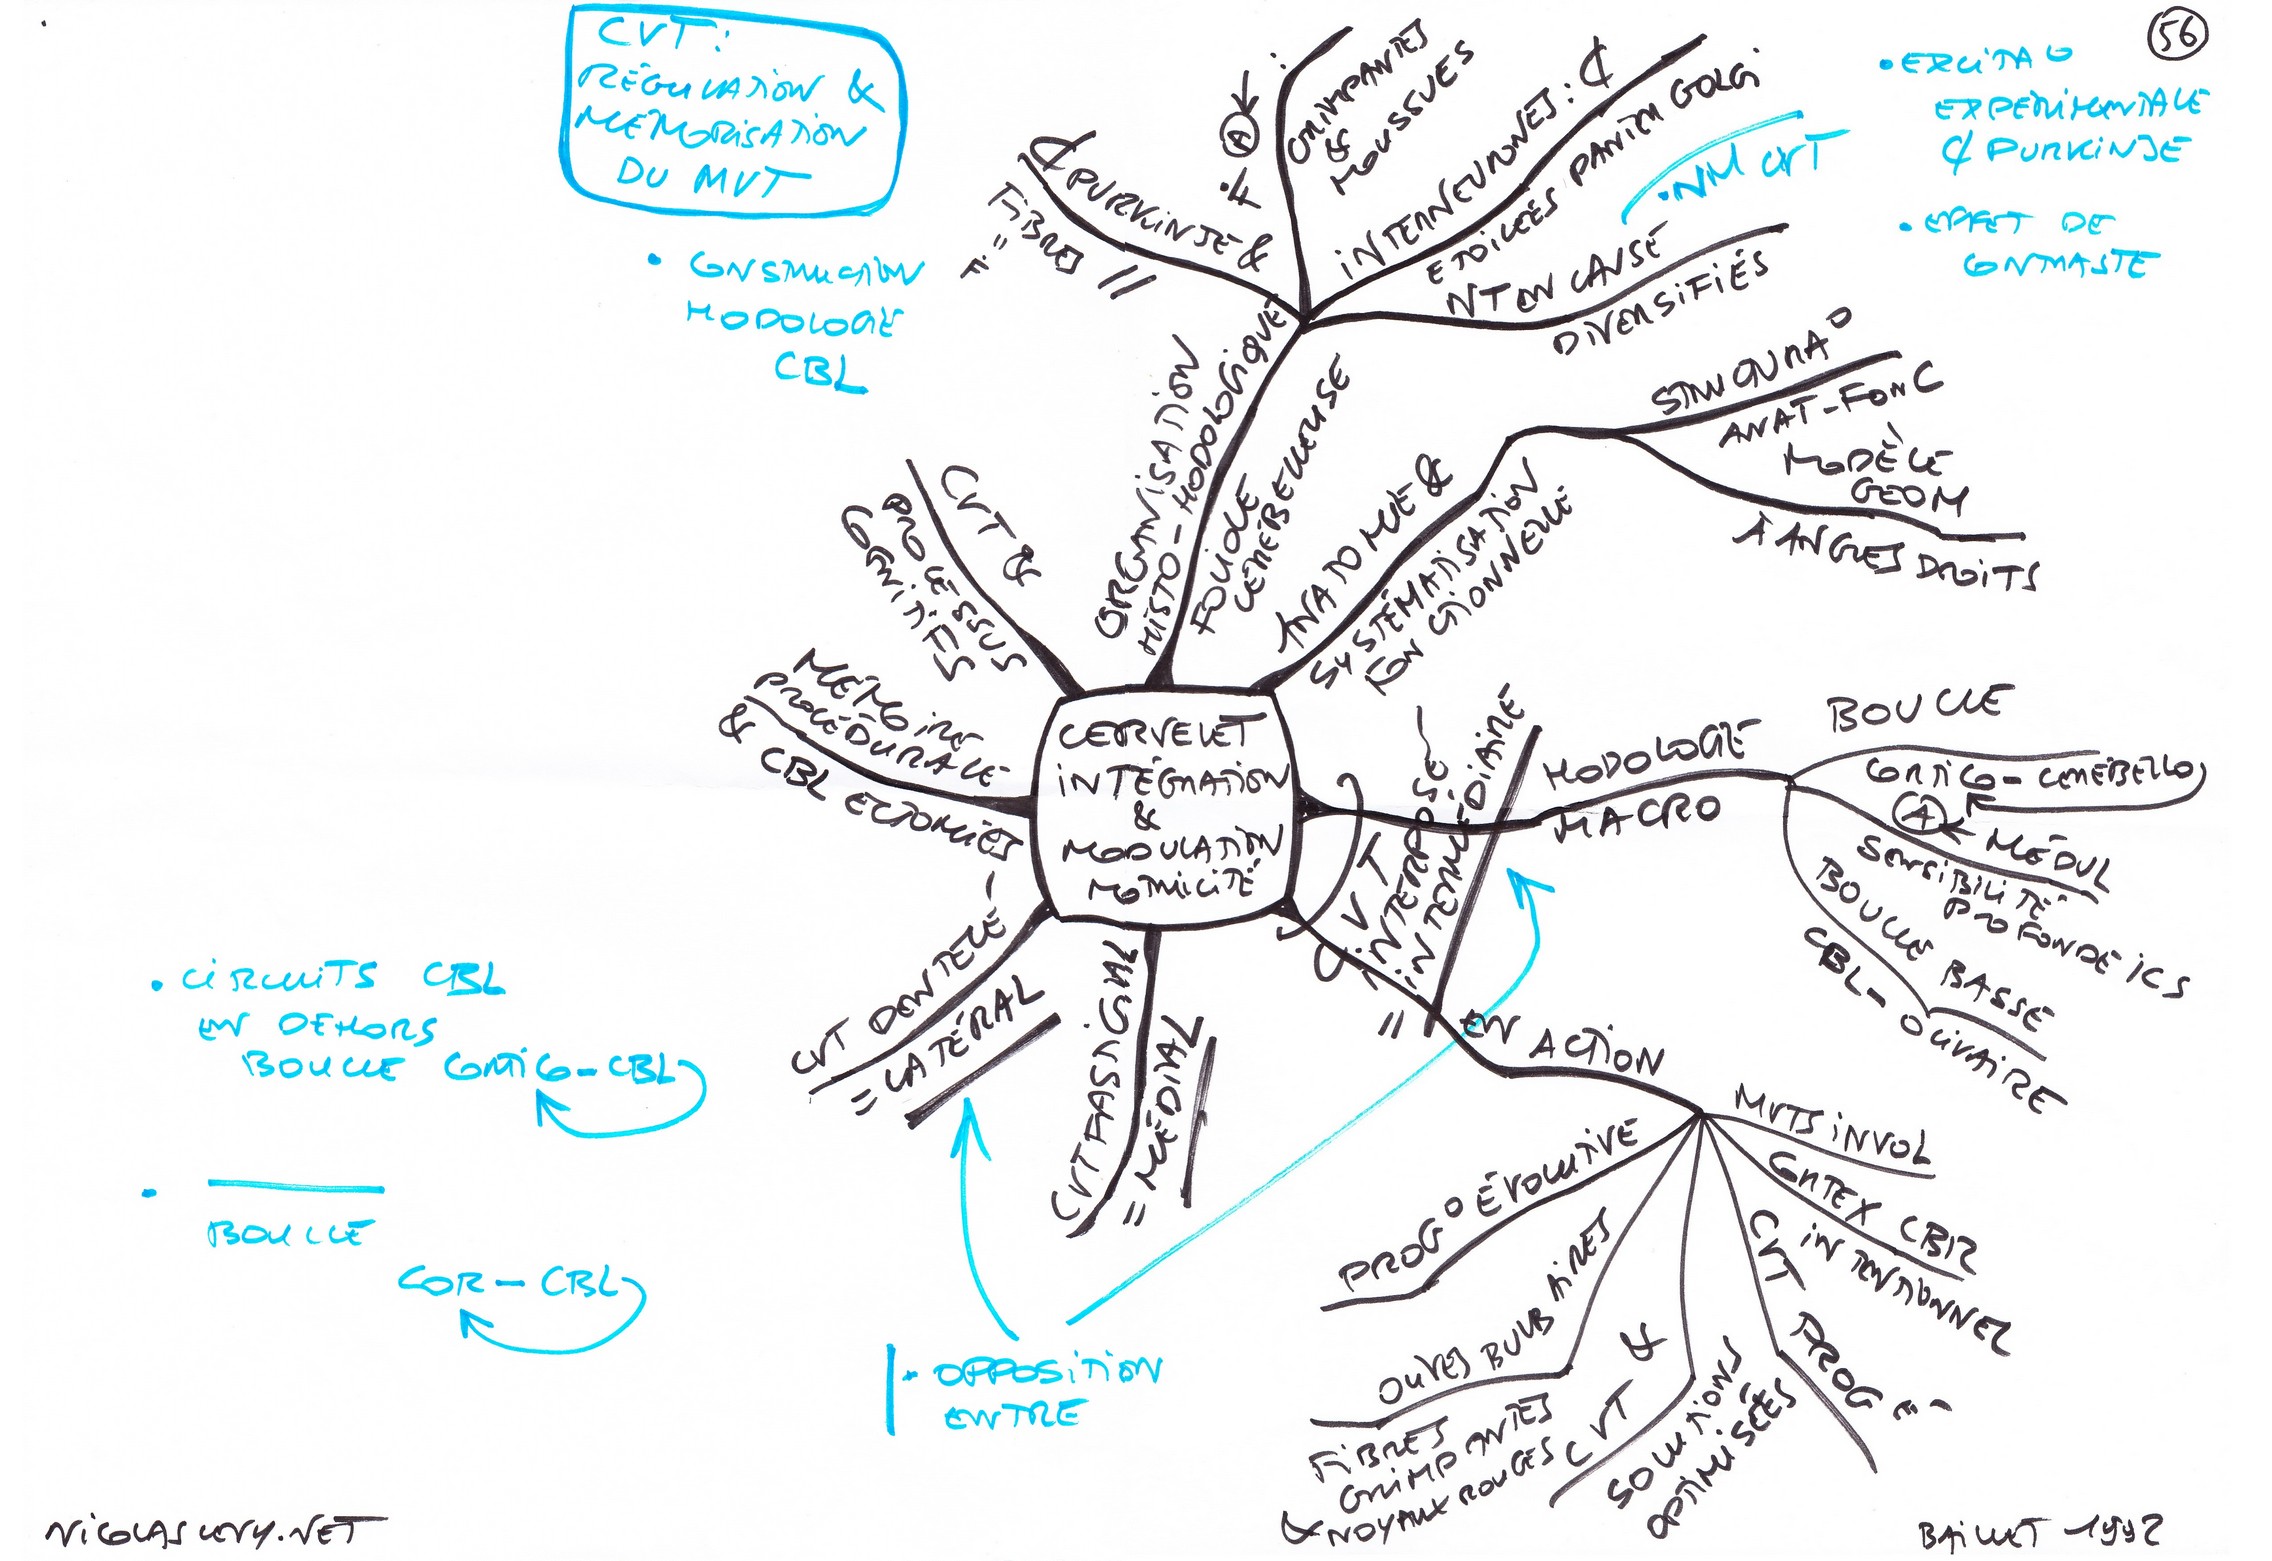 56
CVT:
RÉGULATION &
MÉMORISATION
DU MVT
• CONSTRUCTION
HODOLOGIE
CBL
• EXCITA°
EXPÉRIMENTALE
₵ PURKINJE
• EFFET DE
CONTRASTE
• NM CVT
₵ PURKINJE &
FIBRES //
F. A :
GRIMPANTES
&
MOUSSUES
INTERNEURONES: ₵
ETOILÉES PANIER GOLGI
NT EN CAUSE
DIVERSIFIÉS
ORGANISATION
HISTO-HODOLOGIQUE
FOLIOLE
CÉRÉBELLEUSE
ANATOMIE &
SYSTÉMATISATION
FONCTIONNELLE
STRUCTURA°
ANAT-FONC
MODÈLE
GEOM
À ANGLES DROITS
CVT &
PROCESSUS
COGNITIFS
MÉMOIRE
PROCÉDURALE
& CBL ECTOMIES
CERVELET
INTÉGRATION
&
MODULATION
MOTRICITÉ
HODOLOGIE
MACRO
BOUCLE
CORTICO-CEREBELLO
A MÉDUL
SENSIBILITÉ
PROFONDE ICS
BOUCLE BASSE
CBL-OLIVAIRE
CVT
INTERPOSÉ
= INTERMÉDIAIRE
CVT DENTELÉ
= LATÉRAL
CVT FASTIGIAL
= MÉDIAL
EN ACTION
MVTS INVOL
CORTEX CBR
INTENTIONNEL
CVT PROG
CVT &
SOLUTIONS
OPTIMISÉES
OLIVES BULBAIRES
FIBRES
GRIMPANTES
& NOYAUX ROUGES
PROG° ÉVOLUTIVE
• CIRCUITS CBL
EN DEHORS
BOUCLE CORTICO-CBL
•
BOUCLE
COR-CBL
• OPPOSITION
ENTRE
NICOLASLEVY.NET
BAILLET 1992